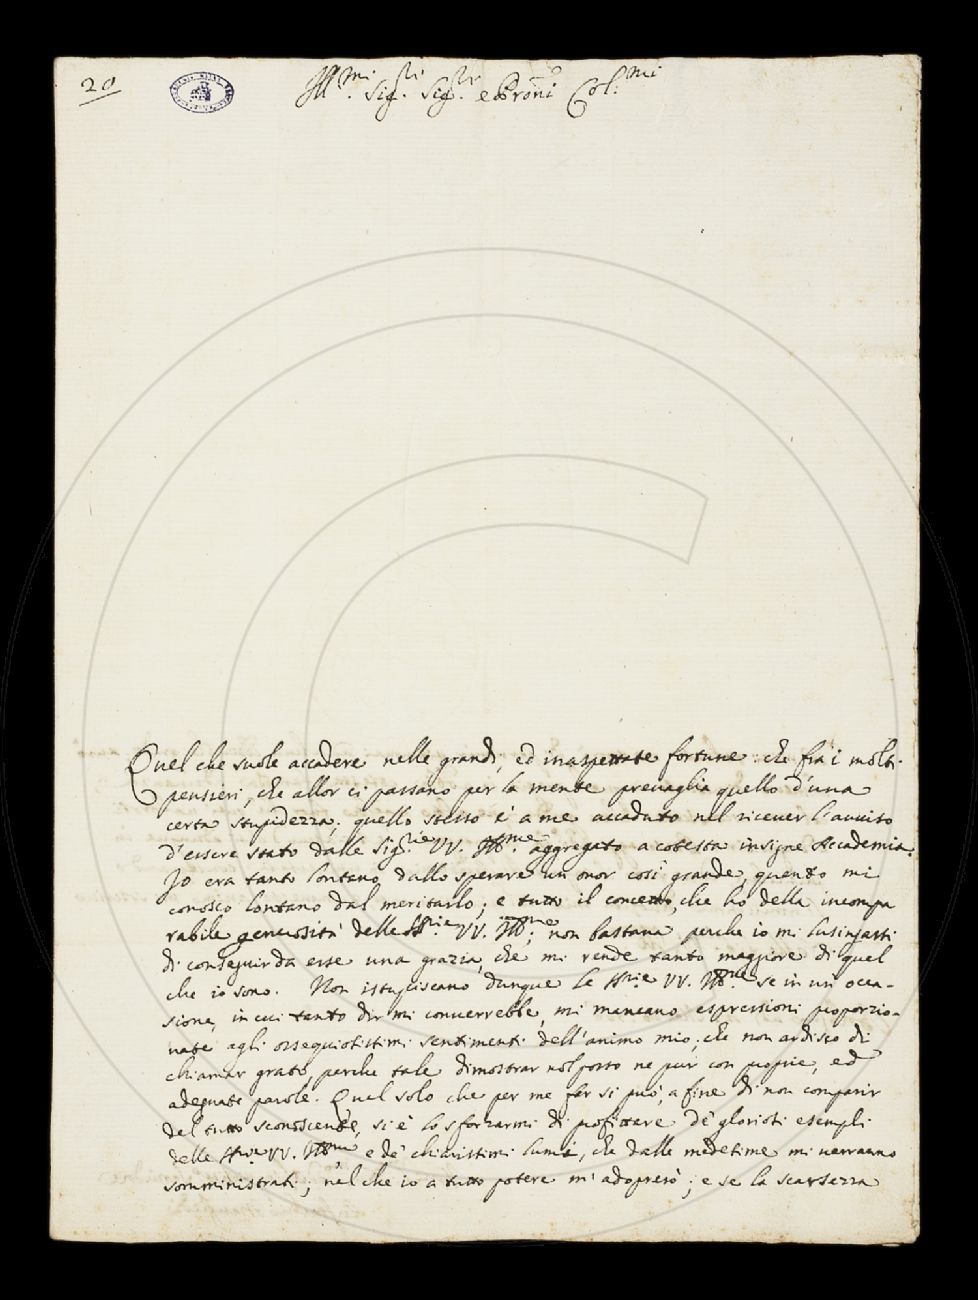 20
Ill.mi Sig.ri Sig.ri e Proni Col.mi
Quel che suole accadere nelle grandi, ed inaspettate fortune: che fra i molti
pensieri, che allor ci passano per la mente prevaglia quello d'una
certa stupidezza; quello stesso è a me accaduto nel ricever l'avviso
d'essere stato dalle Sig.rie VV. Ill.me aggregato a cotesta insigne Accademia.
Io era tanto lontano dallo sperare un onor così grande, quanto mi
conosco lontano dal meritarlo; e tutto il concetto, che ho della incompa
rabile generosità delle SS.rie VV. Ill.me, non bastava perche io mi lusingassi
di conseguir da esse una grazia, che mi rende tanto maggiore di quel
che io sono. Non istupiscano dunque le SS.rie VV. Ill.me se in un occa-
sione, in cui tanto dir mi converrebbe, mi mancano espressioni proporzio-
nate agli ossequiosissimi sentimenti dell'animo mio; che non ardisco di
chiamar grato, perche tale dimostrar nol posso ne pur con proprie, ed
adeguate parole. Quel solo che per me far si può, a fine di non comparir
del tutto sconoscente, si è lo sforzarmi di profittare de' gloriosi esempli
delle SS.rie VV. Ill.me e de' chiarissimi lumi, che dalle medesime mi verranno
somministrati; nel che io a tutto potere m'adoprerò; e se la scarsezza